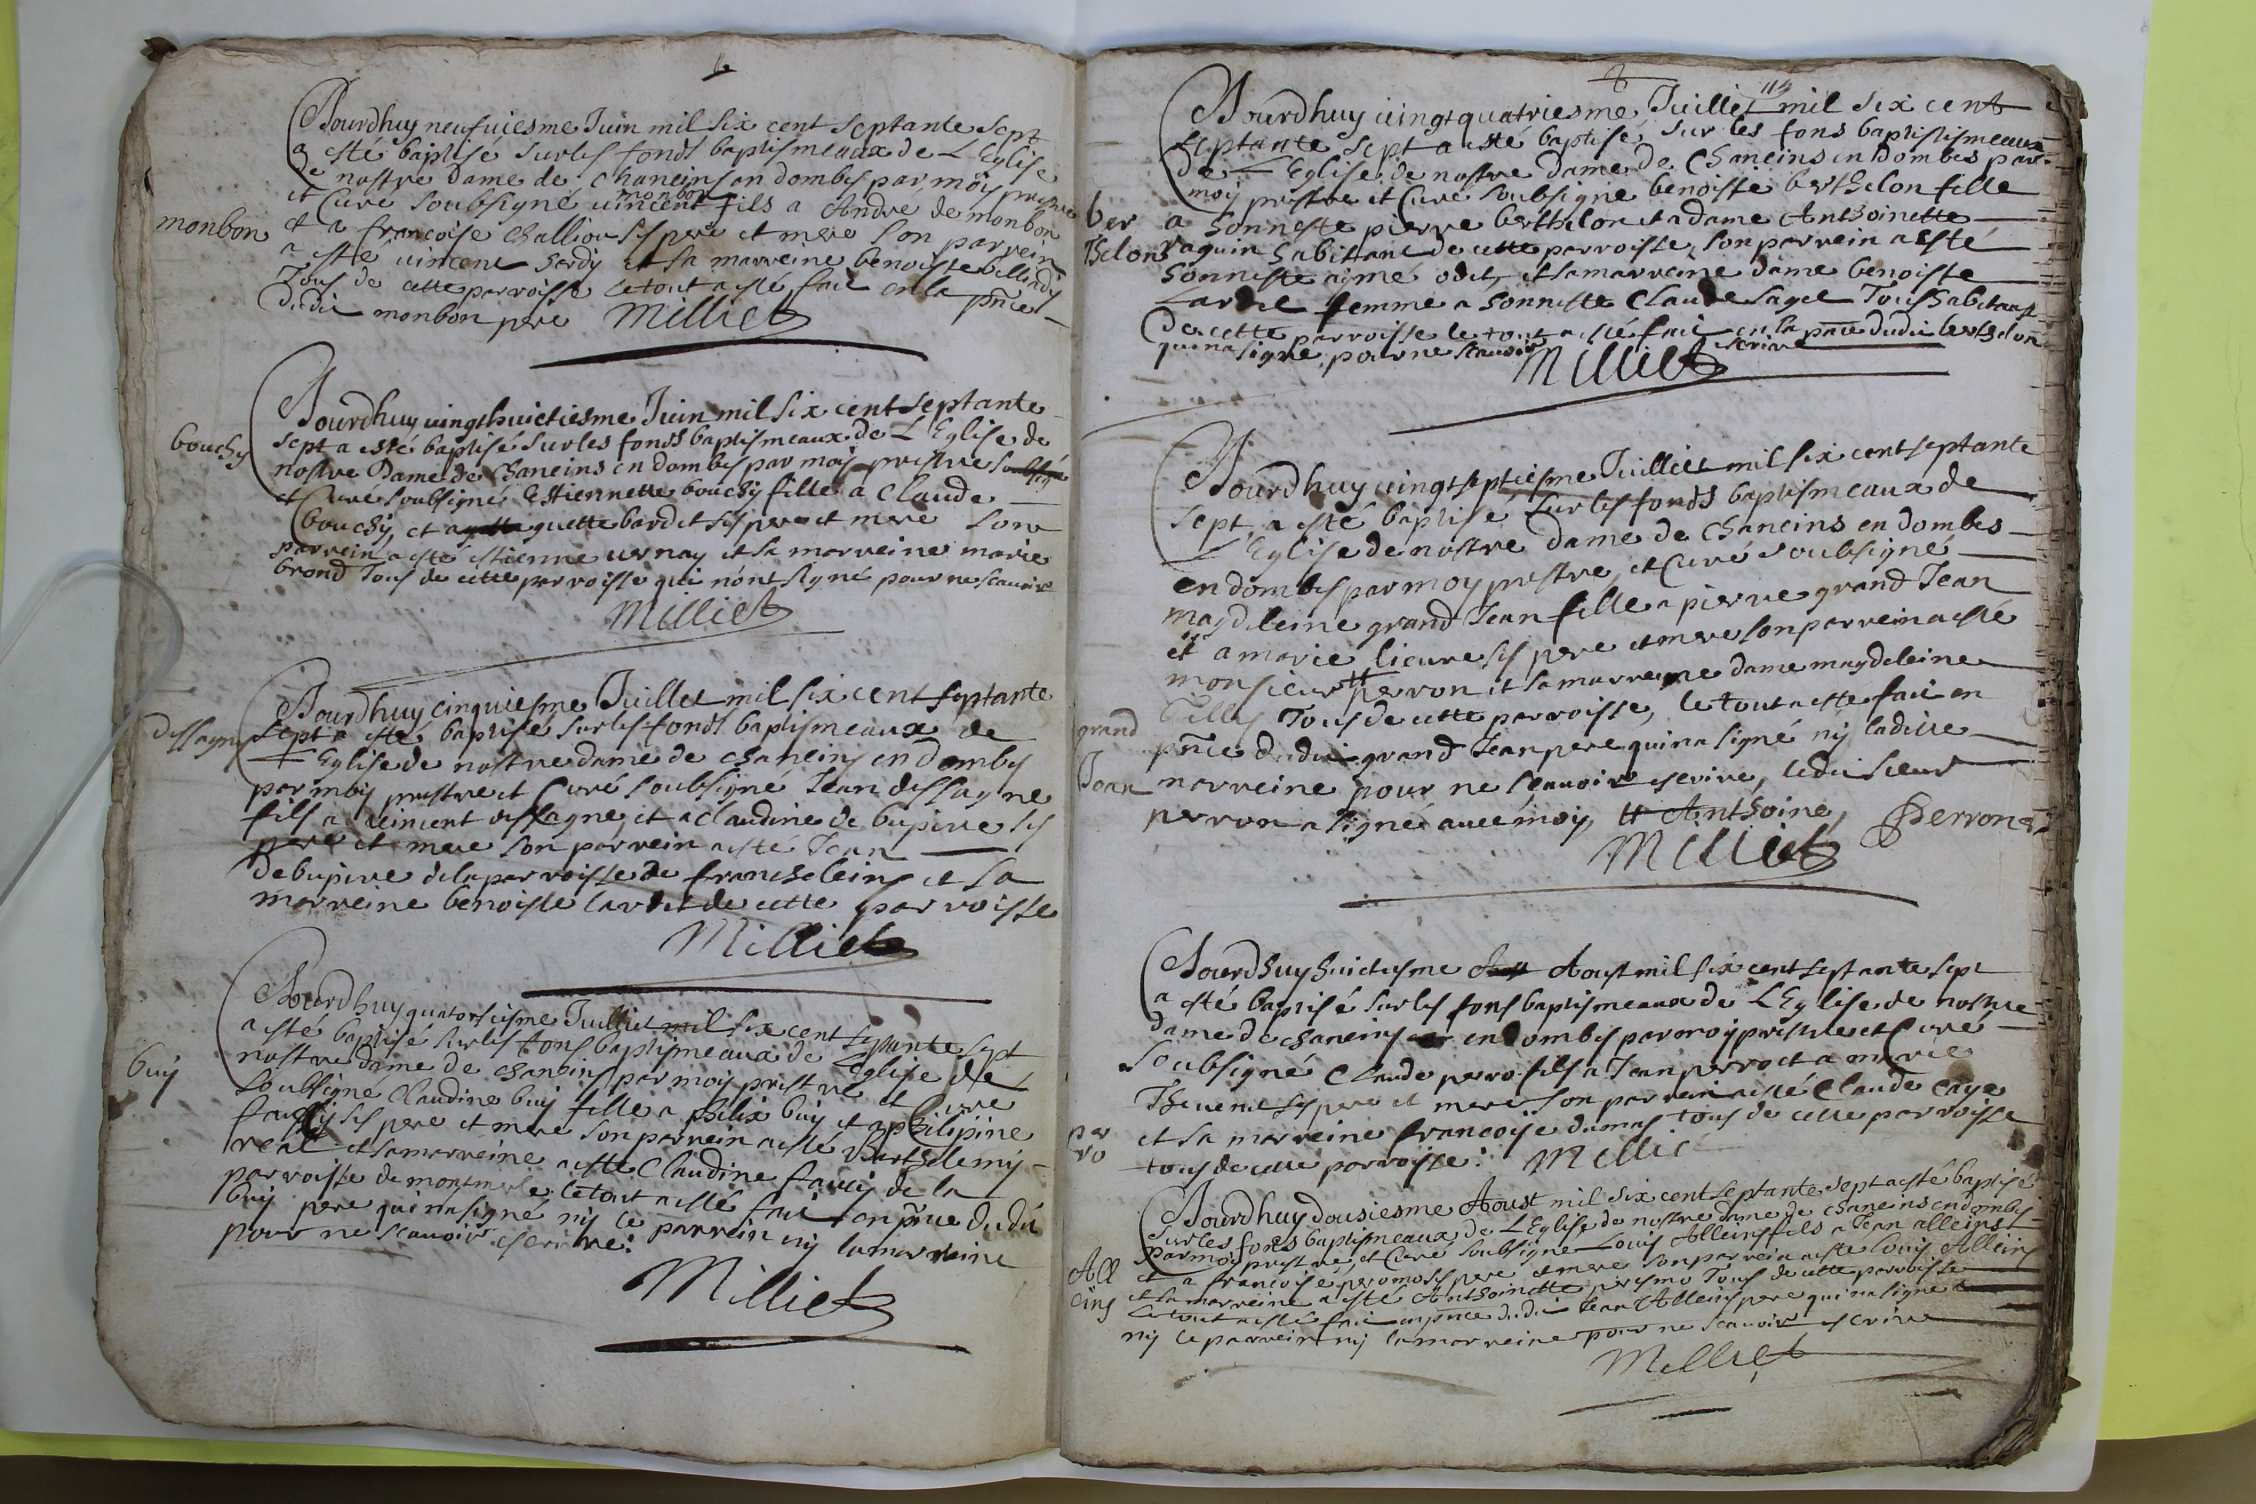 Jourdhuy neufuiesme Juin mil six cent septante sept
a esté baptisé sur les fonds baptismeaux de L Eglise
de nostre dame de chaneins en dombes par moy prestre
et Curé soubsigné uincent monbon fils a Andre de monbon
monbon
et a francoise challiou ses pere et mere son parrein
a esté uincent sardy et sa marreine benoiste
Tous de cette parroisse le tout a esté fait en la pñce
dudit monbon pere Milliet
Jourdhuy uingthuictiesme Juin mil six cent septante
bouchy
sept a esté baptisé sur les fonds baptismeaux de L Eglise de
nostre Dame de Chaneins en dombes par moy prestre
et Curé soubsigné Estiennette bouchy fille a Claude
bouchy, et a guette bardet ses pere et mere son
parrein a esté estienne uernay et sa marreine marie
brond Tous de cette parroisse qui n'ont signé pour ne scauoir
Milliet
Jourdhuy cinquiesme Juillet mil six cent septante
dessagne
sept a esté baptisé sur les fonds baptismeaux de
L Eglise de nostre dame de chaneins en dombes
par moy prestre et Curé soubsigné Jean dessagne
fils a dessagne, et a Claudine de bupiere ses
pere et mere son parrein a esté Jean
debupiere de la parroisse de francheleins et sa
marreine benoiste lardet de cette parroisse
Milliet
Jourdhuy quatorsiesme Juilliet mil six cent septante sept
a esté baptisé sur les fons baptismeaux de L Eglise de
nostre dame de chaneins par moy prestre et Curé
buy
soubsigné Claudine buy fille a philix buy et a philipine
faucy ses pere et mere son parrein a esté Barthelemy
real et sa marreine a esté Claudine faucy de la
parroisse de montmerle le tout a esté fait en pñce dudit
buy pere qui na signé ny le parrein ny la marreine
pour ne scauoir escrire.
Milliet
114
Jourdhuy uingt quatriesme Juillet mil six cent
septante sept a esté baptisé sur les fons baptistismeaux
de L Eglise de nostre Dame de Chaneins en Dombes par
moy prestre et Curé soubsigné benoiste berthelon fille
ber
a honneste pierre berthelon et a dame Anthoinette
thelon
raquin habittant de cette parroisse, son parrein a esté
honneste aimé odet, et sa marreine dame benoiste
Lardet femme a honneste Claude sagel Tous habitans
de cette parroisse le tout a esté fait en la pñce dudit berthelon
qui na signe pour ne scauoir escrire
Milliet
Jourdhuy uingt septiesme Juilliet mil six cent septante
sept, a esté baptisé sur les fonds baptismeaux de
L Eglise de nostre dame de Chaneins en dombes
en dombes par moy prestre, et Curé soubsigné
magdeleine grand Jean fille a pierre grand Jean
et a marie lieure ses pere et mere son parrein a esté
monsieur # perron et sa marreine dame magdeleine
Tous de cette parroisse, le tout a este fait en
grand
pñce dudit grand Jean pere qui na signé ny ladite
Jean
marreine pour ne scauoir escrire, ledit sieur
perron a signé auec moy, # Anthoine, Perron
Milliet
Jourdhuy huictiesme Aoust mil six cent septante sept
a esté baptisé sur les fons baptismeaux de L Eglise de nostre
dame de chaneins en dombes par moy prestre et Curé
soubsigné Claude perro fils a Jean perro et a marie
Theuenet ses pere et mere son parrein a esté Claude caye
per
et sa marreine francoise dumas tous de cette parroisse
ro
tous de cette parroisse. Milliet
Jourdhuy dousiesme Aoust mil six cent septante sept a esté baptisé
sur les fons baptismeaux de L Eglise de nostre dame de Chaneins en dombes
par moy prestre, et Curé soubsigné Louis Alleins fils a Jean alleins
All
et a francoise peromo ses pere et mere son parrein a esté Louis Alleins
eins
et sa marreine a esté Anthoinette peromo Tous de cette parroisse
Le tout a esté fait en pñce dudit Jean Alleins pere qui na signé
ny le parrein ny la marreine pour ne scauoir escrire
Milliet